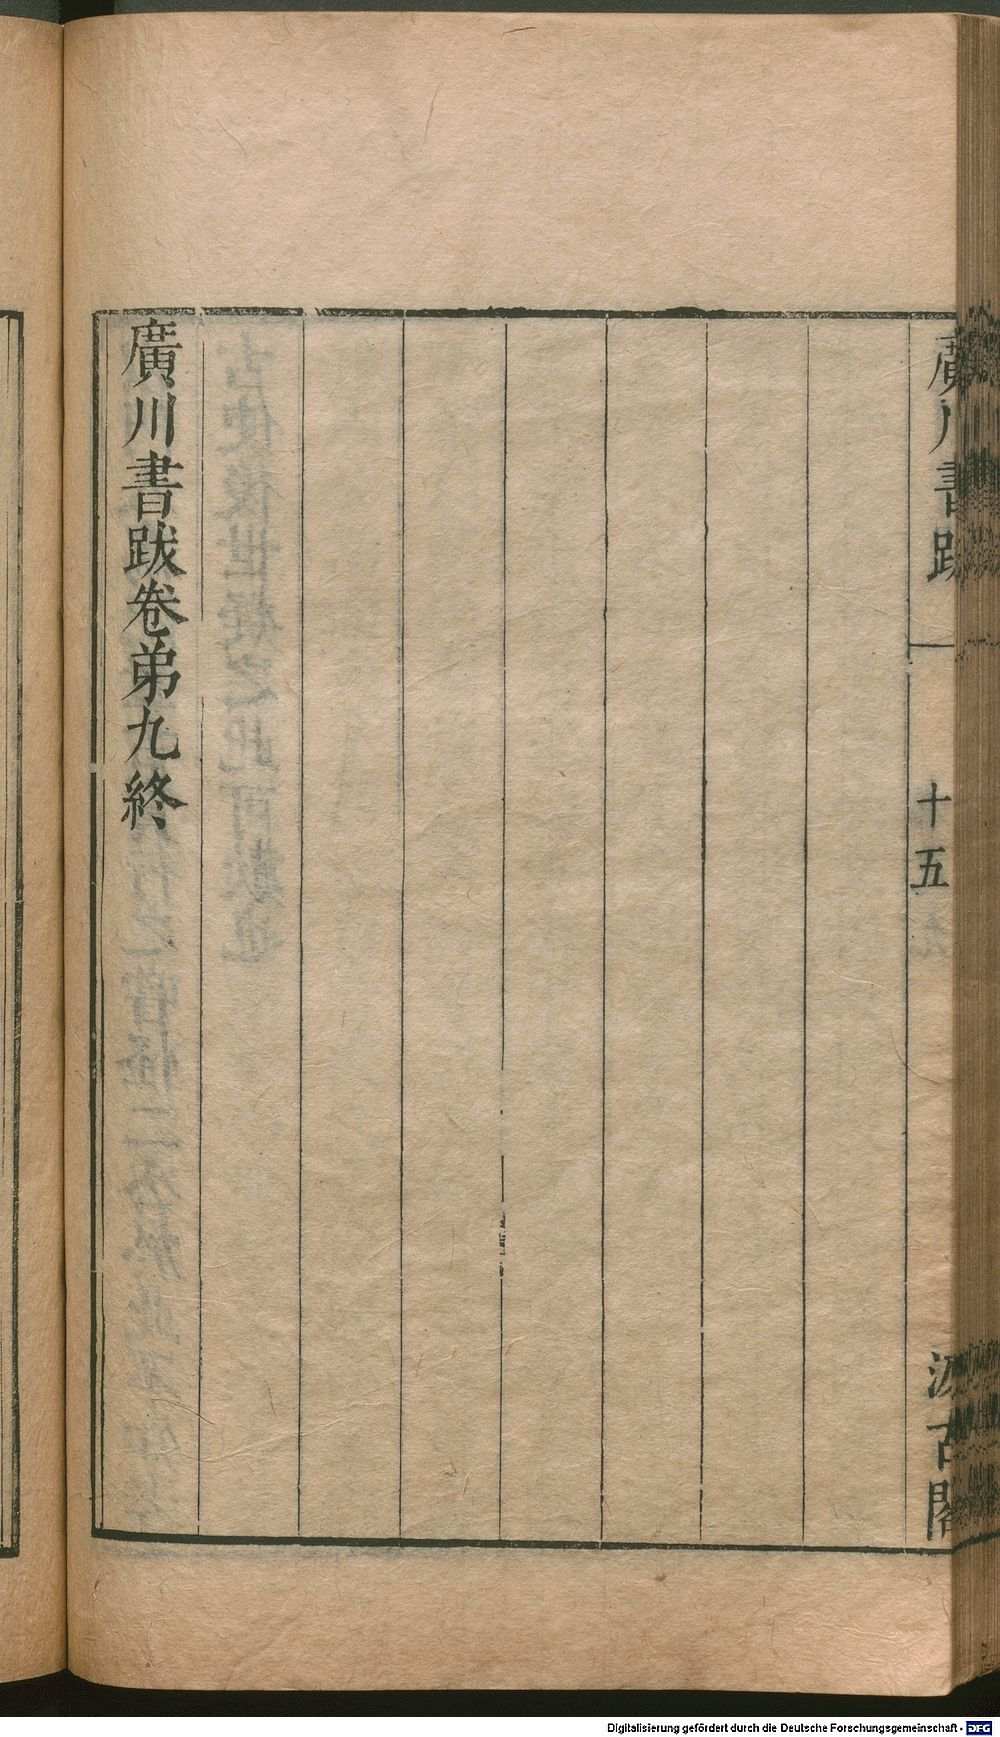 廣川書跋
十五
汲古閣
廣川書跋卷弟九終
Digitalisierung gefördert durch die Deutsche Forschungsgemeinschaft - DFG